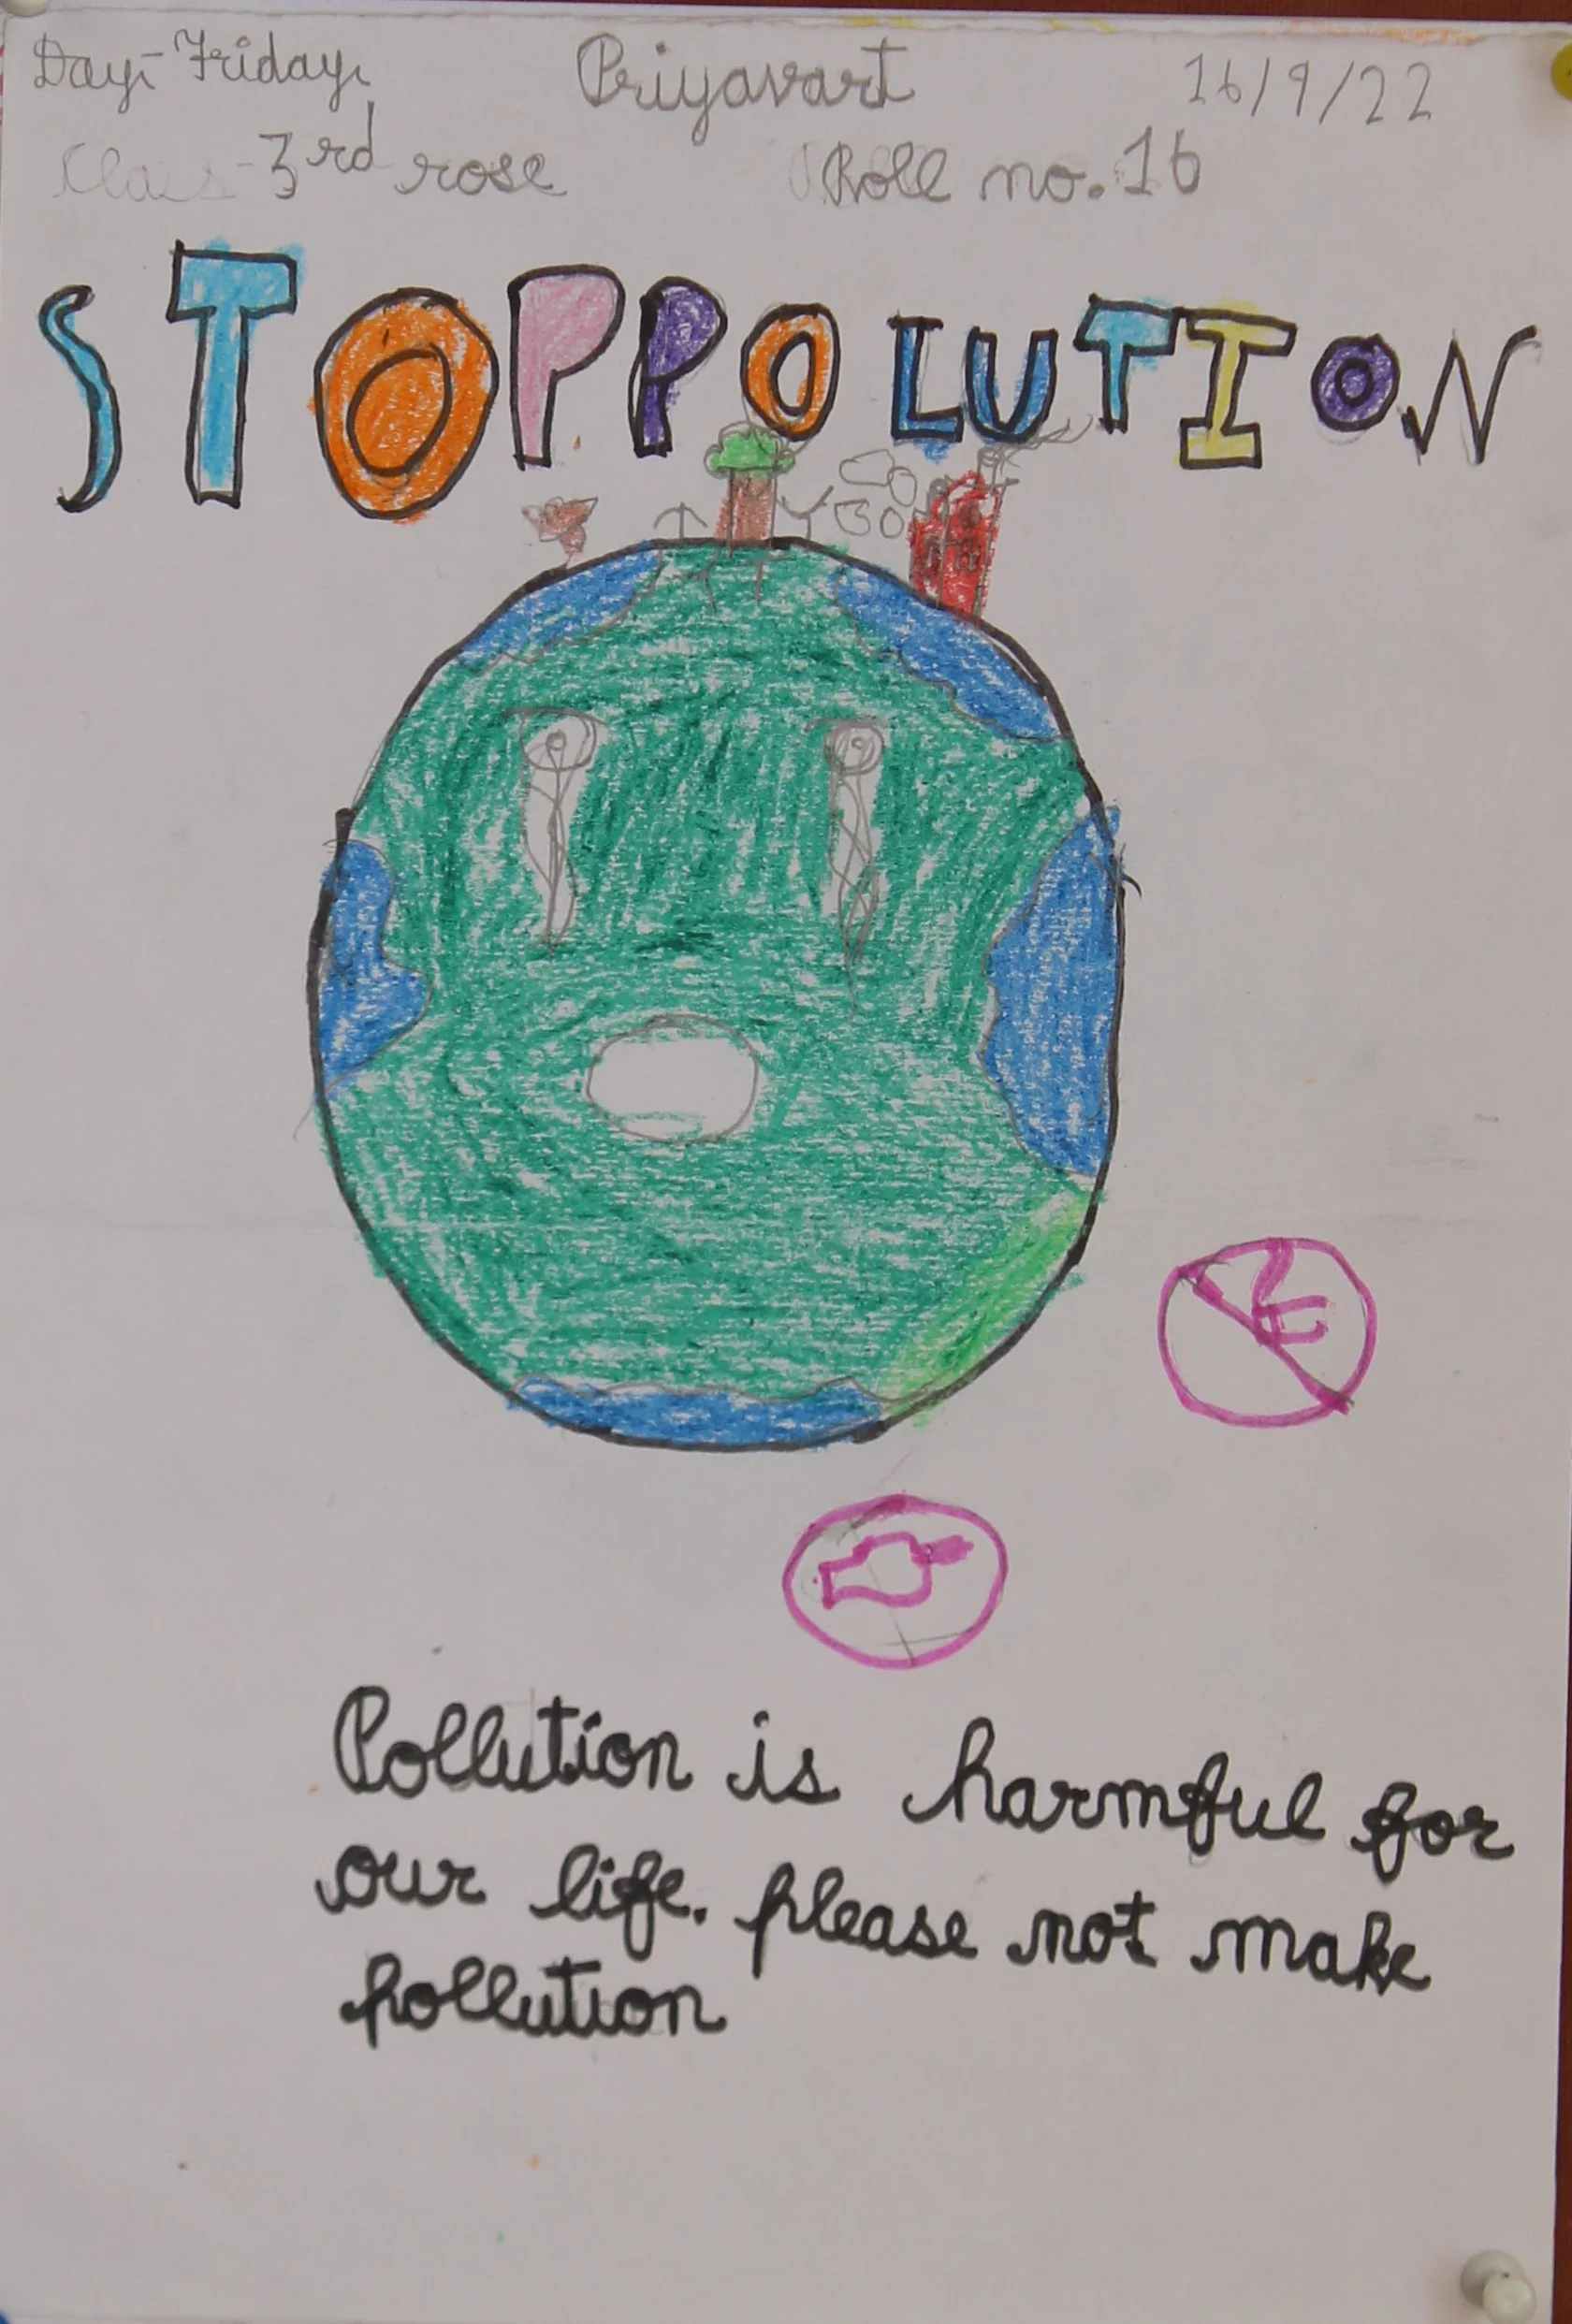 Day:- Friday, Priyavart 16/9/22
Class - 3rd rose Roll no. 16
STOP POLUTION
Pollution is harmful for
our life. please not make
pollution